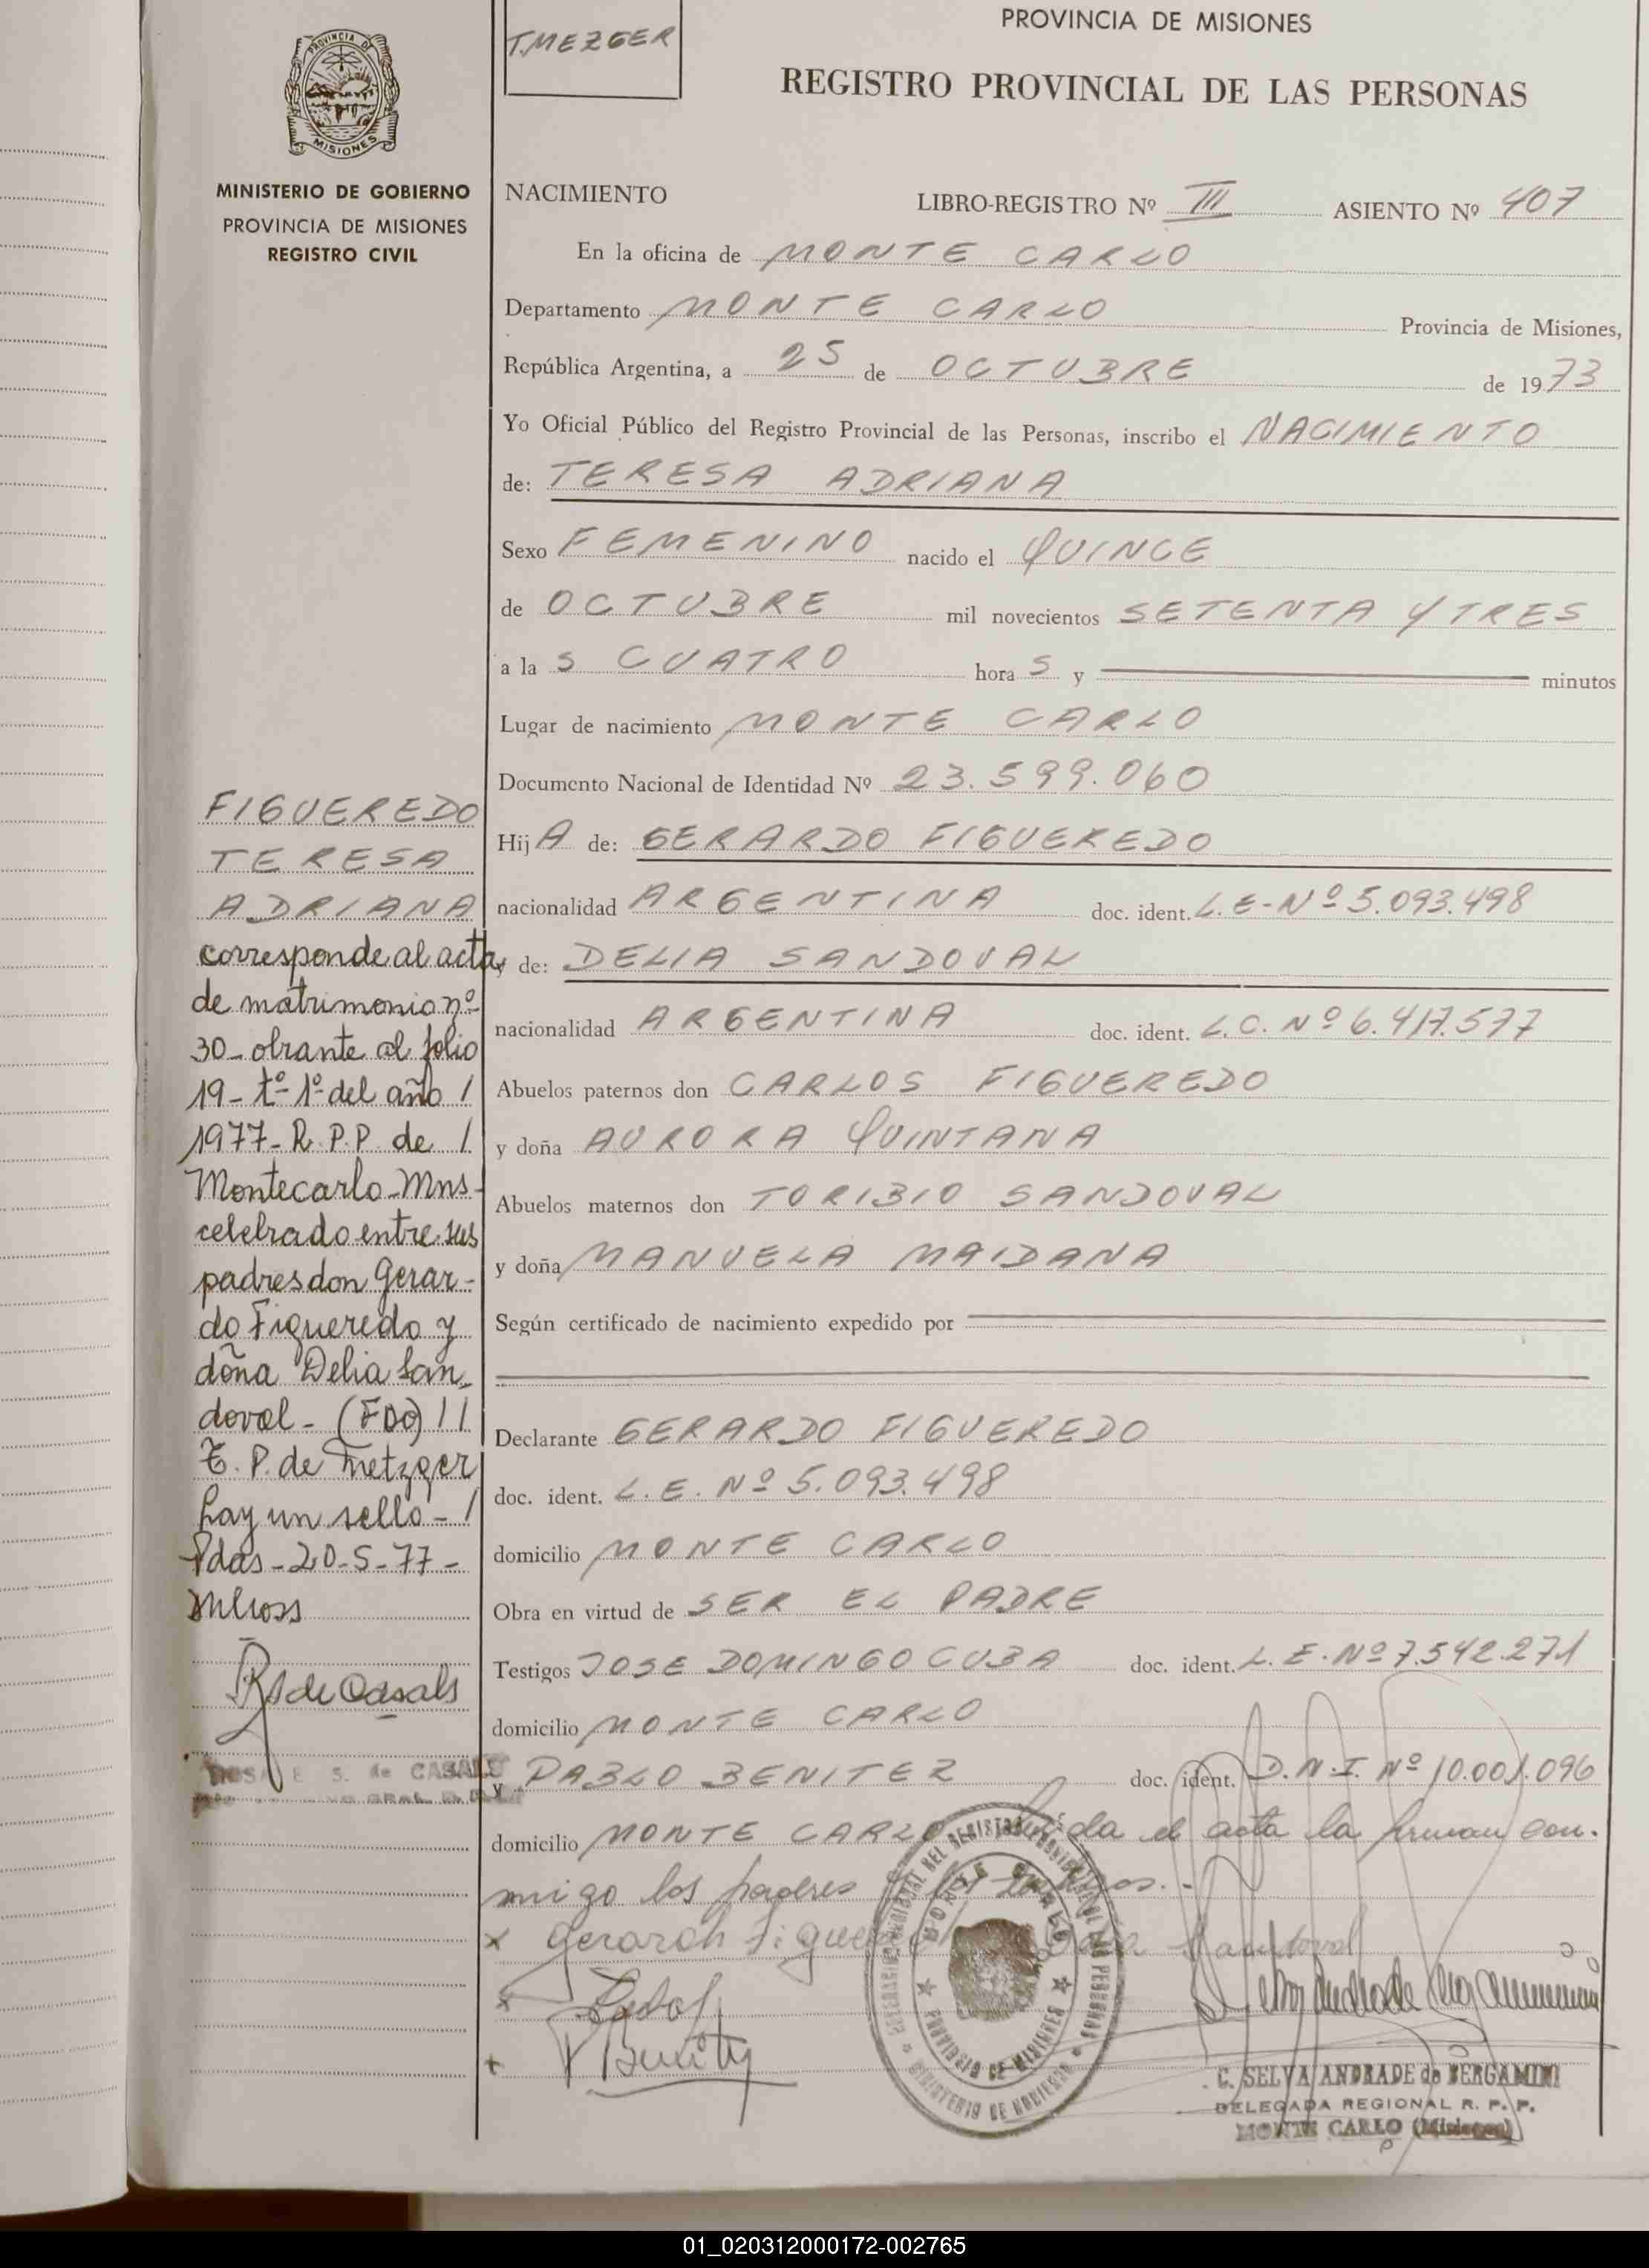 T. MEZGER
PROVINCIA DE MISIONES
REGISTRO PROVINCIAL DE LAS PERSONAS
PROVINCIA DE
MISIONES
MINISTERIO DE GOBIERNO
PROVINCIA DE MISIONES
REGISTRO CIVIL
NACIMIENTO LIBRO-REGISTRO Nº III ASIENTO Nº 407
En la oficina de MONTE CARLO
Departamento MONTE CARLO Provincia de Misiones,
República Argentina, a 25 de OCTUBRE de 1973
Yo Oficial Público del Registro Provincial de las Personas, inscribo el NACIMIENTO
de: TERESA ADRIANA
Sexo FEMENINO nacido el QUINCE
de OCTUBRE mil novecientos SETENTA Y TRES
a la S CUATRO hora S y minutos
Lugar de nacimiento MONTE CARLO
Documento Nacional de Identidad Nº 23.599.060
Hij A de: GERARDO FIGUEREDO
nacionalidad ARGENTINA doc. ident. L.E-Nº 5.093.498
y de: DELIA SANDOVAL
nacionalidad ARGENTINA doc. ident. L.C. Nº 6.417.577
Abuelos paternos don CARLOS FIGUEREDO
y doña AURORA QUINTANA
Abuelos maternos don TORIBIO SANDOVAL
y doña MANUELA MAIDANA
Según certificado de nacimiento expedido por
Declarante GERARDO FIGUEREDO
doc. ident. L.E. Nº 5.093.498
domicilio MONTE CARLO
Obra en virtud de SER EL PADRE
Testigos JOSE DOMINGO CUBA doc. ident. L.E. Nº 7.542.271
domicilio MONTE CARLO
y PABLO BENITEZ doc. ident. D.N.I. Nº 10.001.096
domicilio MONTE CARLO Leída el acta la firman con-
migo los padres y los testigos.-
FIGUEREDO
TERESA
ADRIANA
corresponde al acta
de matrimonio nº
30- obrante al folio
19- tº 1º del año /
1977- R.P.P. de /
Montecarlo- Mns-
celebrado entre sus
padres don Gerar-
do Figueredo y
doña Delia San-
doval- (FDO) //
T. P. de Metzger
hay un sello- /
Pdas- 20-5-77-
R S de Casals
ROSA E. S. de CASALS
x Gerardo Figueredo Delia Sandoval
x
x P Benitez
MONTE CARLO
PROVINCIA DE MISIONES
MINISTERIO DE GOBIERNO
C. SELVA ANDRADE de BERGAMINI
DELEGADA REGIONAL R. P. P.
MONTE CARLO (Misiones)
01_020312000172-002765